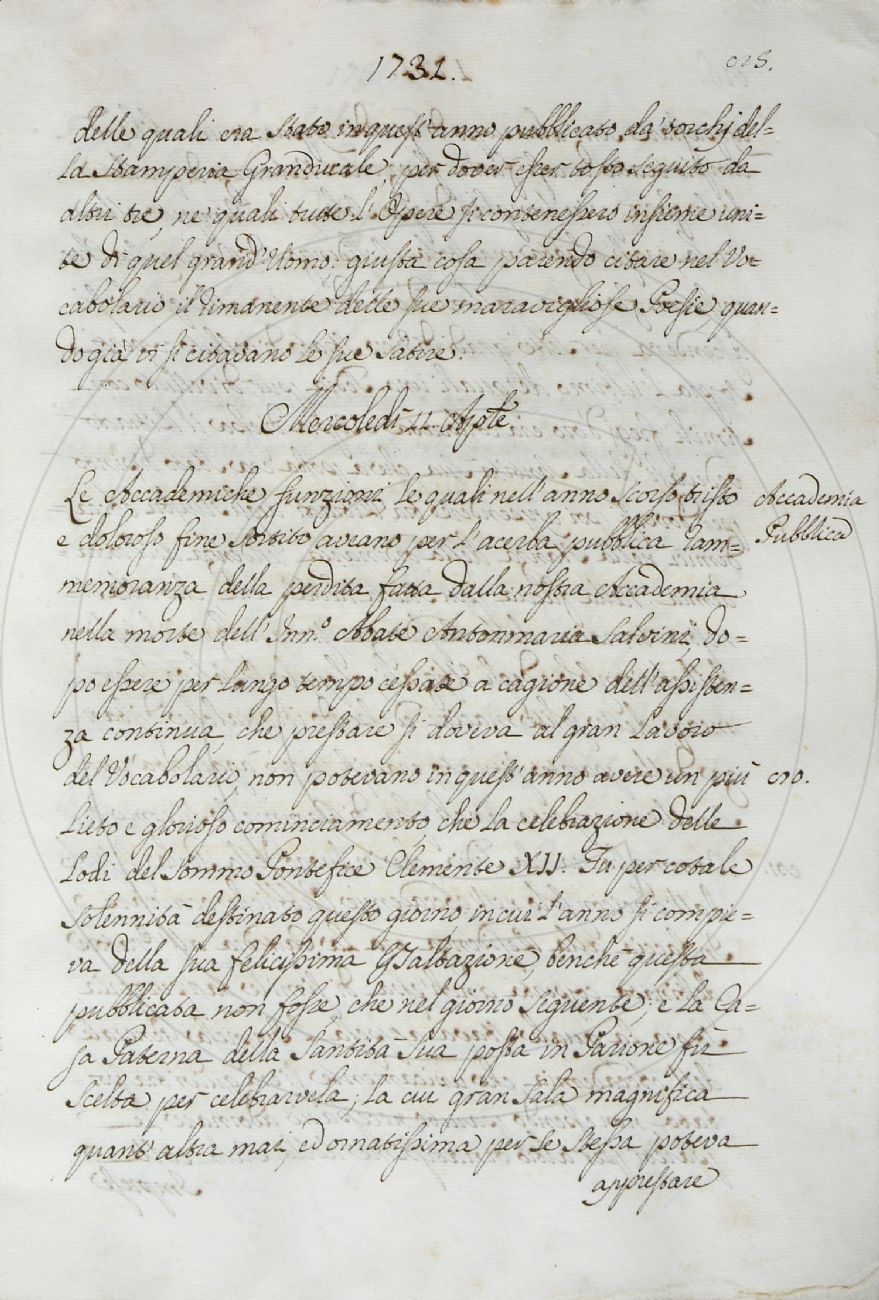 1731.
delle quali era stato in quest'anno pubblicato da' torchj del-
la Stamperia Granducale, per dover esser tosto seguito da
altri tre, ne' quali tutte l'Opere si contenessero insieme uni-
te di quel grand'Uomo: giusta cosa parendo citare nel Vo-
cabolario il rimanente delle sue maravigliose Poesie, quan-
do già vi si citavano le sue Satire.
Mercoledì 11. Ag.te
Le Accademiche funzioni le quali nell'anno scorso tristo
Accademia
Pubblica
e doloroso fine sortito aveano per l'acerba pubblica ram-
memoranza della perdita fatta dalla nostra Accademia
nella morte dell'Inn.o Abate Antonmaria Salvini, do-
po essere per lungo tempo cessate a cagione dell'assisten-
za continua, che prestare si doveva al gran Lavoro
del Vocabolario, non potevano in quest'anno avere un più
lieto e glorioso cominciamento, che la celebrazione delle
Lodi del Sommo Pontefice Clemente XII. Fu per cotale
solennità destinato questo giorno in cui l'anno si compie-
va della sua felicissima Esaltazione, benchè questa
pubblicata non fosse, che nel giorno seguente; e la Ca-
sa Paterna della Santità Sua posta in Parione fu
scelta per celebrarvela; la cui gran Sala magnifica
quant'altra mai, ed ornatissima per se stessa poteva
apprestare